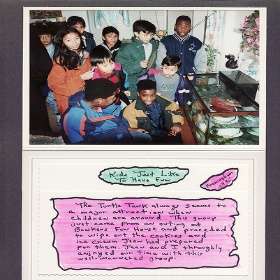 Kids Just Like
To Have Fun
The Turtle Tank always seems to
be a major attraction when
children are around. This group
just came from an outing at
Bonkers Fun House and proceeded
to wipe out the cookies and
ice cream Jean had prepared
for them. Jean and I thoroughly
enjoyed our time with this
well-mannered group.